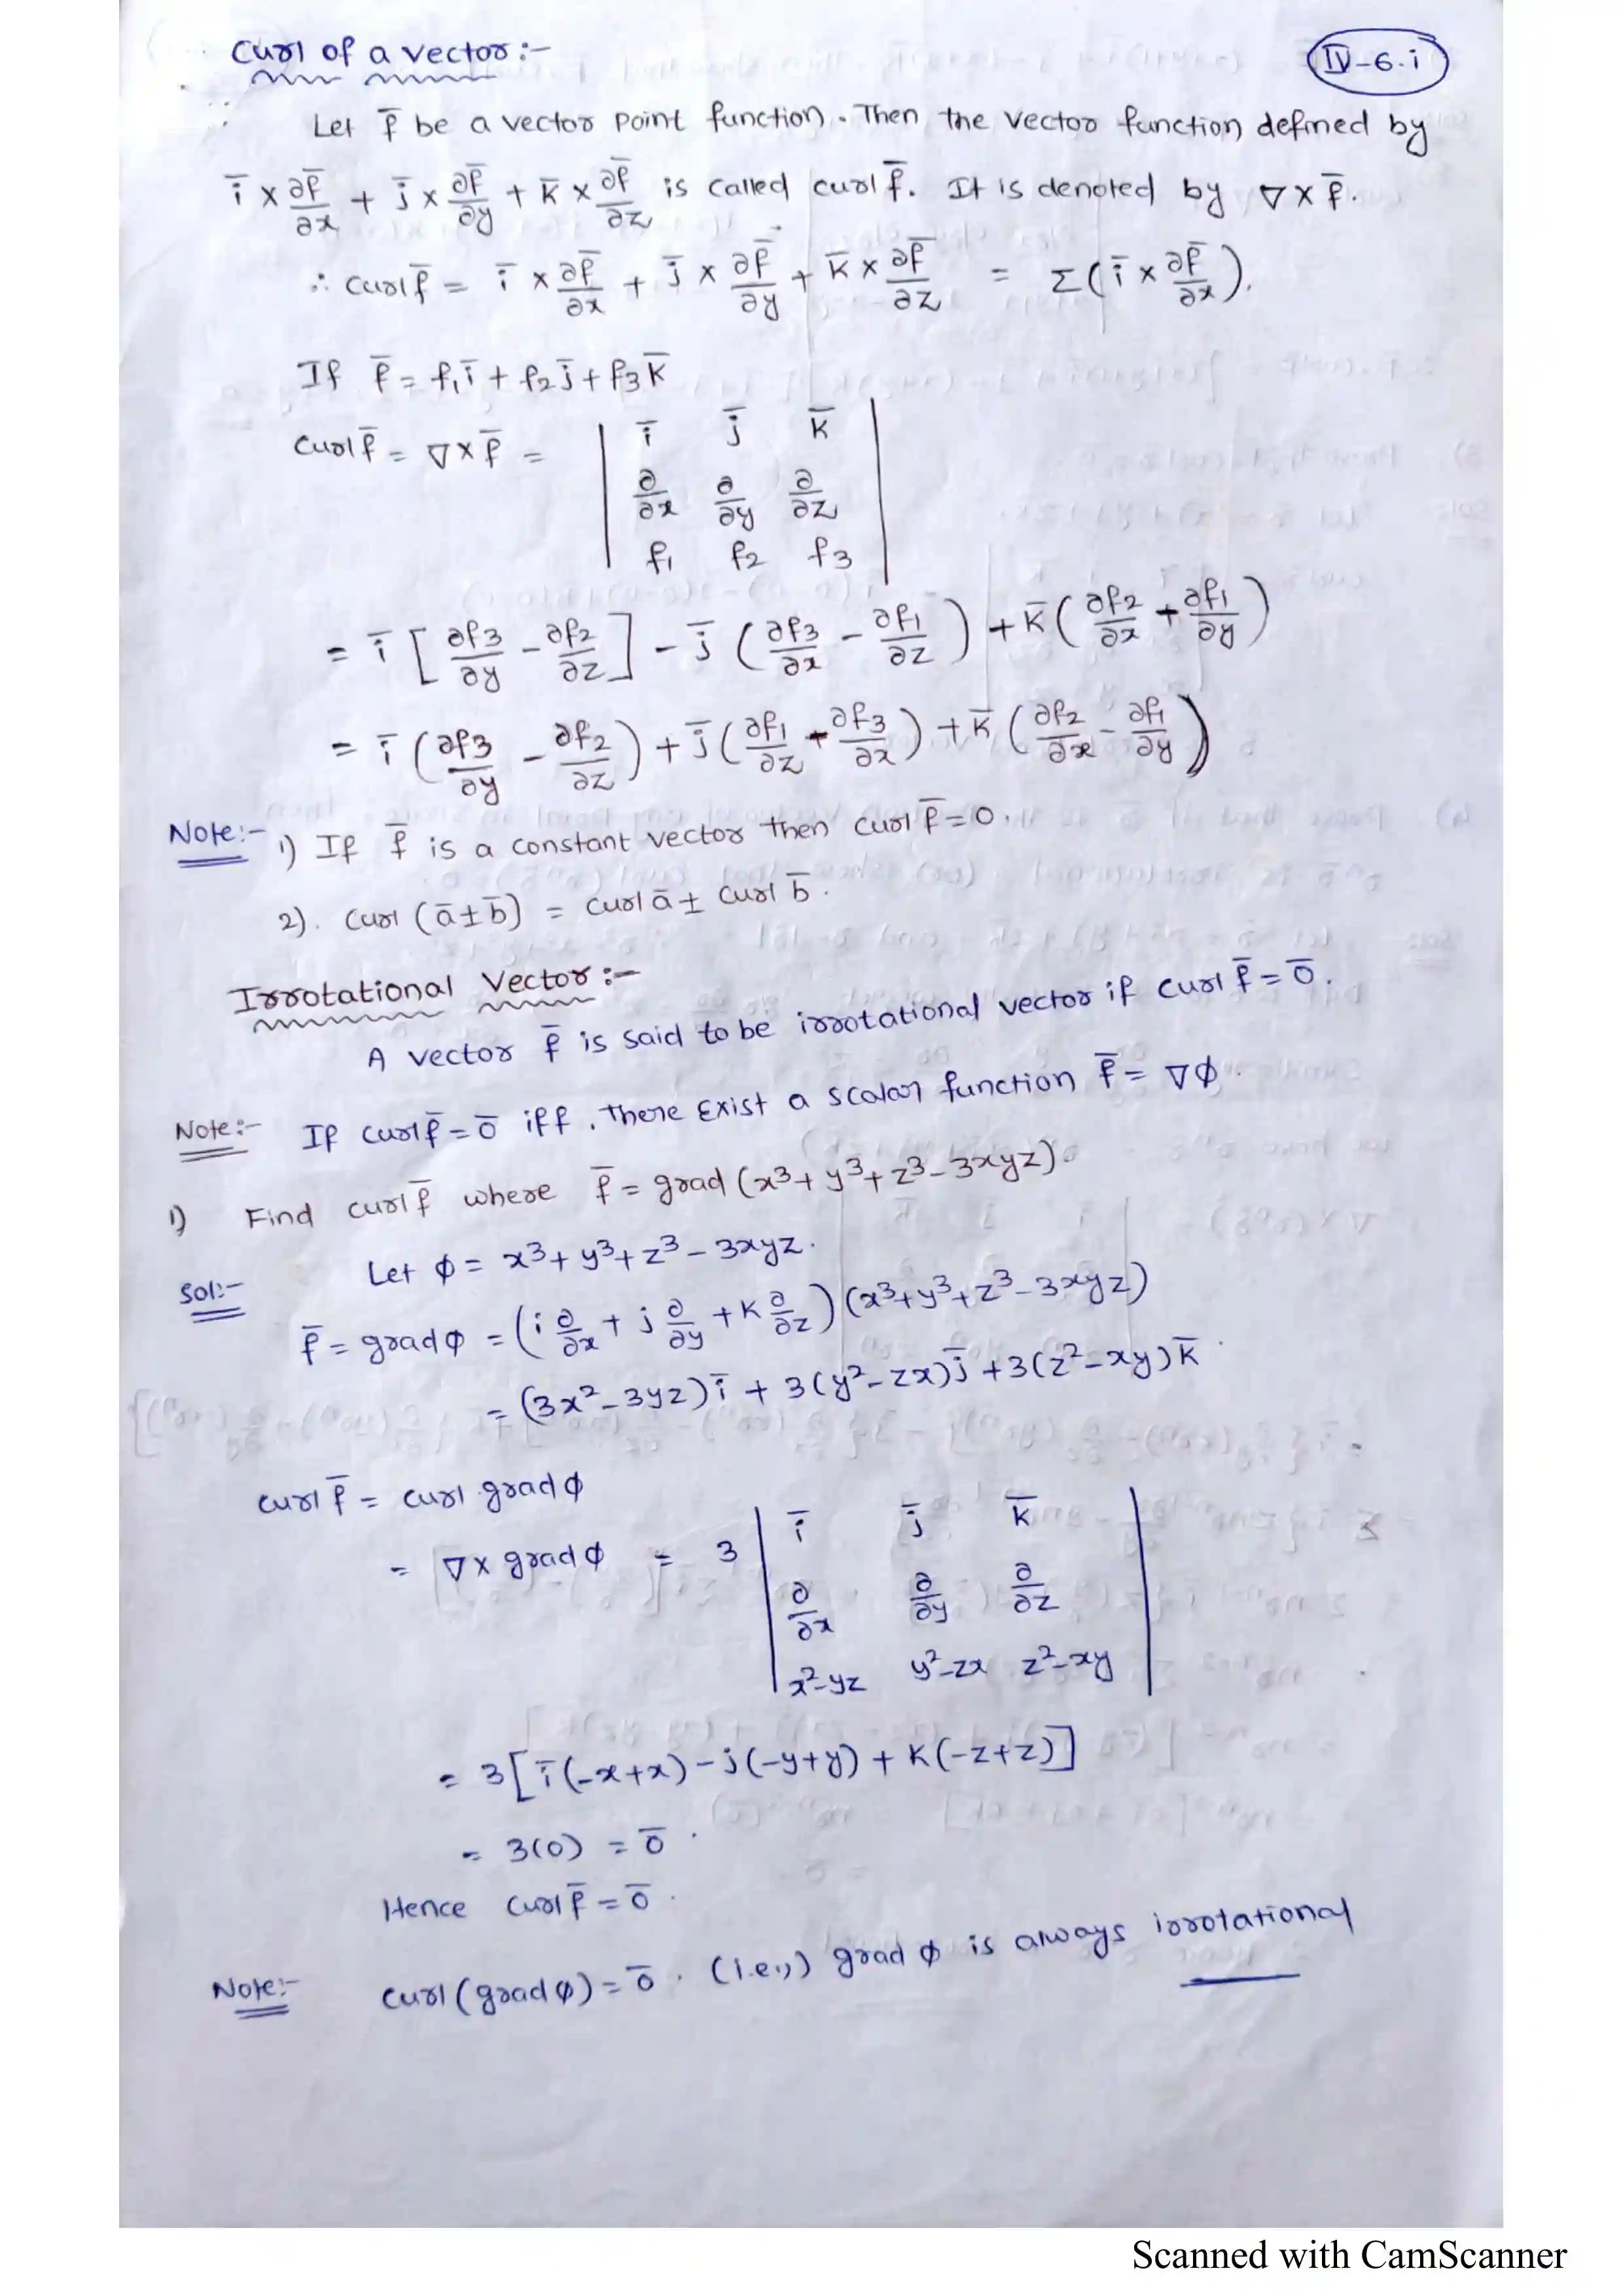 Curl of a vector :-
IV-6.i
Let f̄ be a vector point function. Then the vector function defined by
ī × ∂f̄/∂x + j̄ × ∂f̄/∂y + k̄ × ∂f̄/∂z is called curl f̄. It is denoted by ∇×f̄.
∴ curl f̄ = ī × ∂f̄/∂x + j̄ × ∂f̄/∂y + k̄ × ∂f̄/∂z = Σ(ī × ∂f̄/∂x).
If f̄ = f₁ī + f₂j̄ + f₃k̄
curl f̄ = ∇×f̄ = | ī j̄ k̄ |
| ∂/∂x ∂/∂y ∂/∂z |
| f₁ f₂ f₃ |
= ī [∂f₃/∂y - ∂f₂/∂z] - j̄ (∂f₃/∂x - ∂f₁/∂z) + k̄ (∂f₂/∂x + ∂f₁/∂y)
= ī (∂f₃/∂y - ∂f₂/∂z) + j̄ (∂f₁/∂z - ∂f₃/∂x) + k̄ (∂f₂/∂x - ∂f₁/∂y)
Note:- 1) If f̄ is a constant vector then curl f̄ = 0.
2). curl (ā ± b̄) = curl ā ± curl b̄.
Irrotational Vector :-
A vector f̄ is said to be irrotational vector if curl f̄ = 0̄.
Note:- If curl f̄ = 0̄ iff. There Exist a scalar function f̄ = ∇ϕ.
1) Find curl f̄ where f̄ = grad (x³ + y³ + z³ - 3xyz).
Sol:- Let ϕ = x³ + y³ + z³ - 3xyz.
f̄ = grad ϕ = (i ∂/∂x + j ∂/∂y + k ∂/∂z) (x³ + y³ + z³ - 3xyz)
= (3x² - 3yz)ī + 3(y² - zx)j̄ + 3(z² - xy)k̄.
curl f̄ = curl grad ϕ
= ∇ × grad ϕ = 3 | ī j̄ k̄ |
| ∂/∂x ∂/∂y ∂/∂z |
| x²-yz y²-zx z²-xy |
= 3[ī(-x+x) - j(-y+y) + k(-z+z)]
= 3(0) = 0̄.
Hence curl f̄ = 0̄.
Note:- curl (grad ϕ) = 0̄. (i.e.,) grad ϕ is always irrotational
Scanned with CamScanner